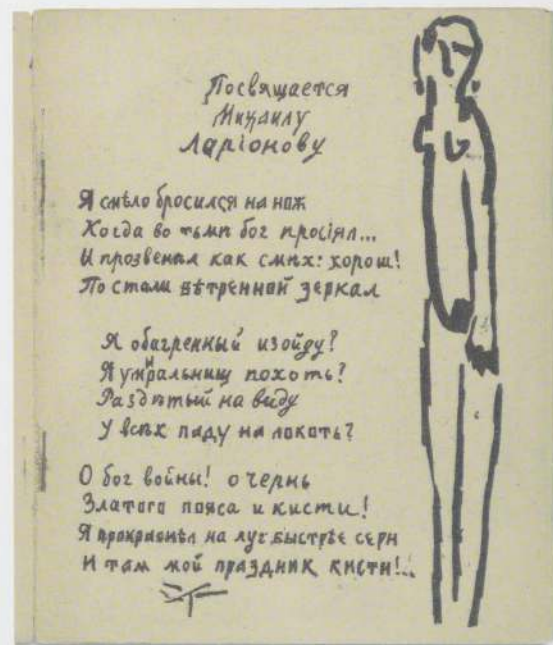 Посвящается
Михаилу
Ларіонову
Я смѣло бросился на нож
Когда во тьмѣ бог просіял...
И прозвенѣл как смѣх: хорош!
По стали вѣтренной зеркал
Я обагренный изойду?
похоть?
Раздѣтый на виду
У всѣх паду на локоть?
О бог войны! о чернь
Златого пояса и кисти!
Я на луг быстрѣе серн
И там мой праздник кисти!..